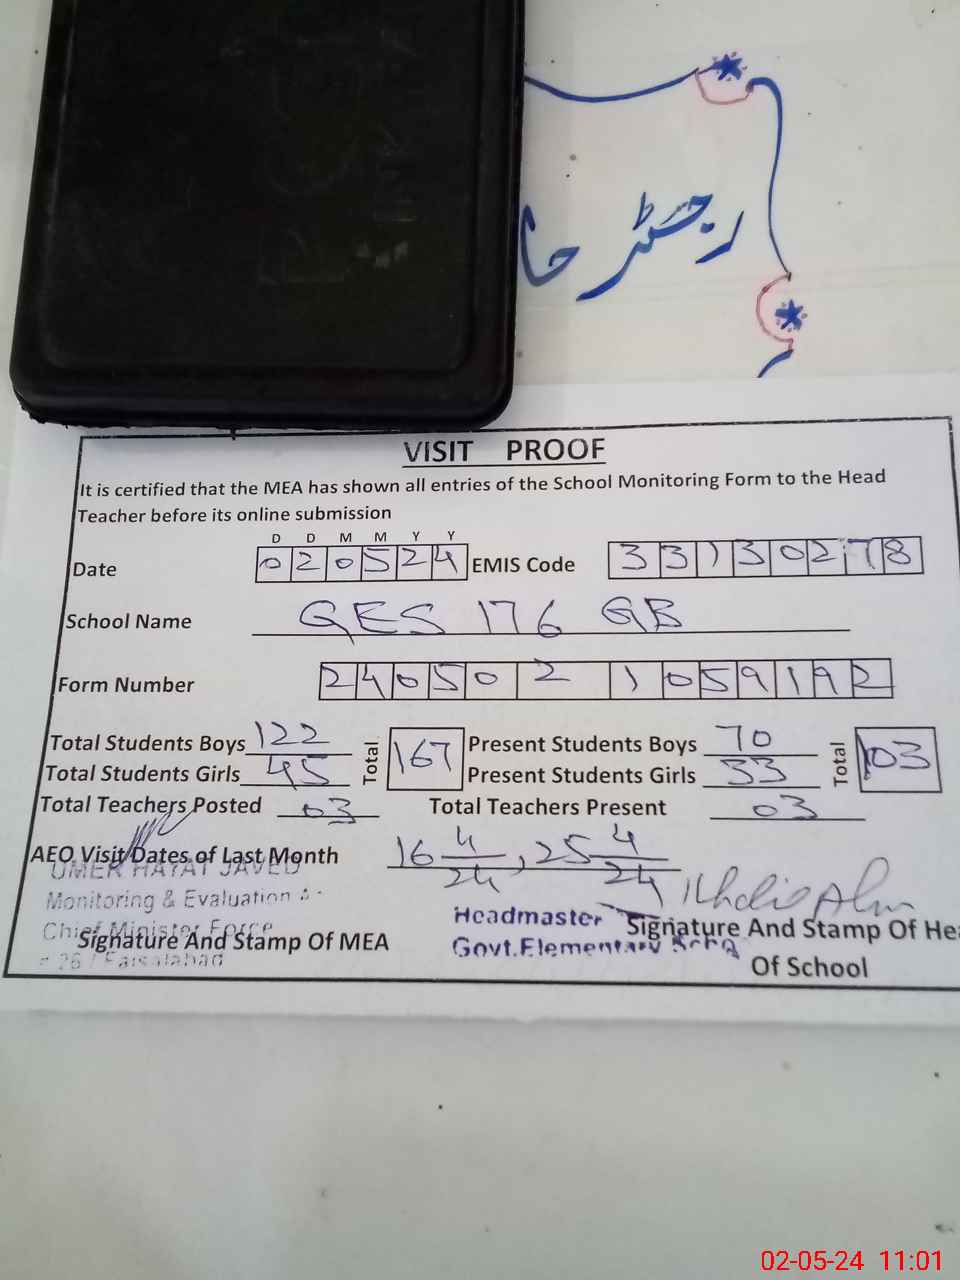 رجسٹر حا
VISIT PROOF
It is certified that the MEA has shown all entries of the School Monitoring Form to the Head
Teacher before its online submission
D D M M Y Y
Date 020524 EMIS Code 33130278
School Name GES 176 GB
Form Number 240502 1059192
Total Students Boys 122 Total 167 Present Students Boys 70 Total 103
Total Students Girls 45 Present Students Girls 33
Total Teachers Posted 03 Total Teachers Present 03
AEO Visit Dates of Last Month 16 4/24, 25 4/24
UMER HAYAT JAVED
Monitoring & Evaluation A
Chief Minister Force
Faisalabad
Signature And Stamp Of MEA
Headmaster
Govt.Elementary
Signature And Stamp Of He
Of School
02-05-24 11:01